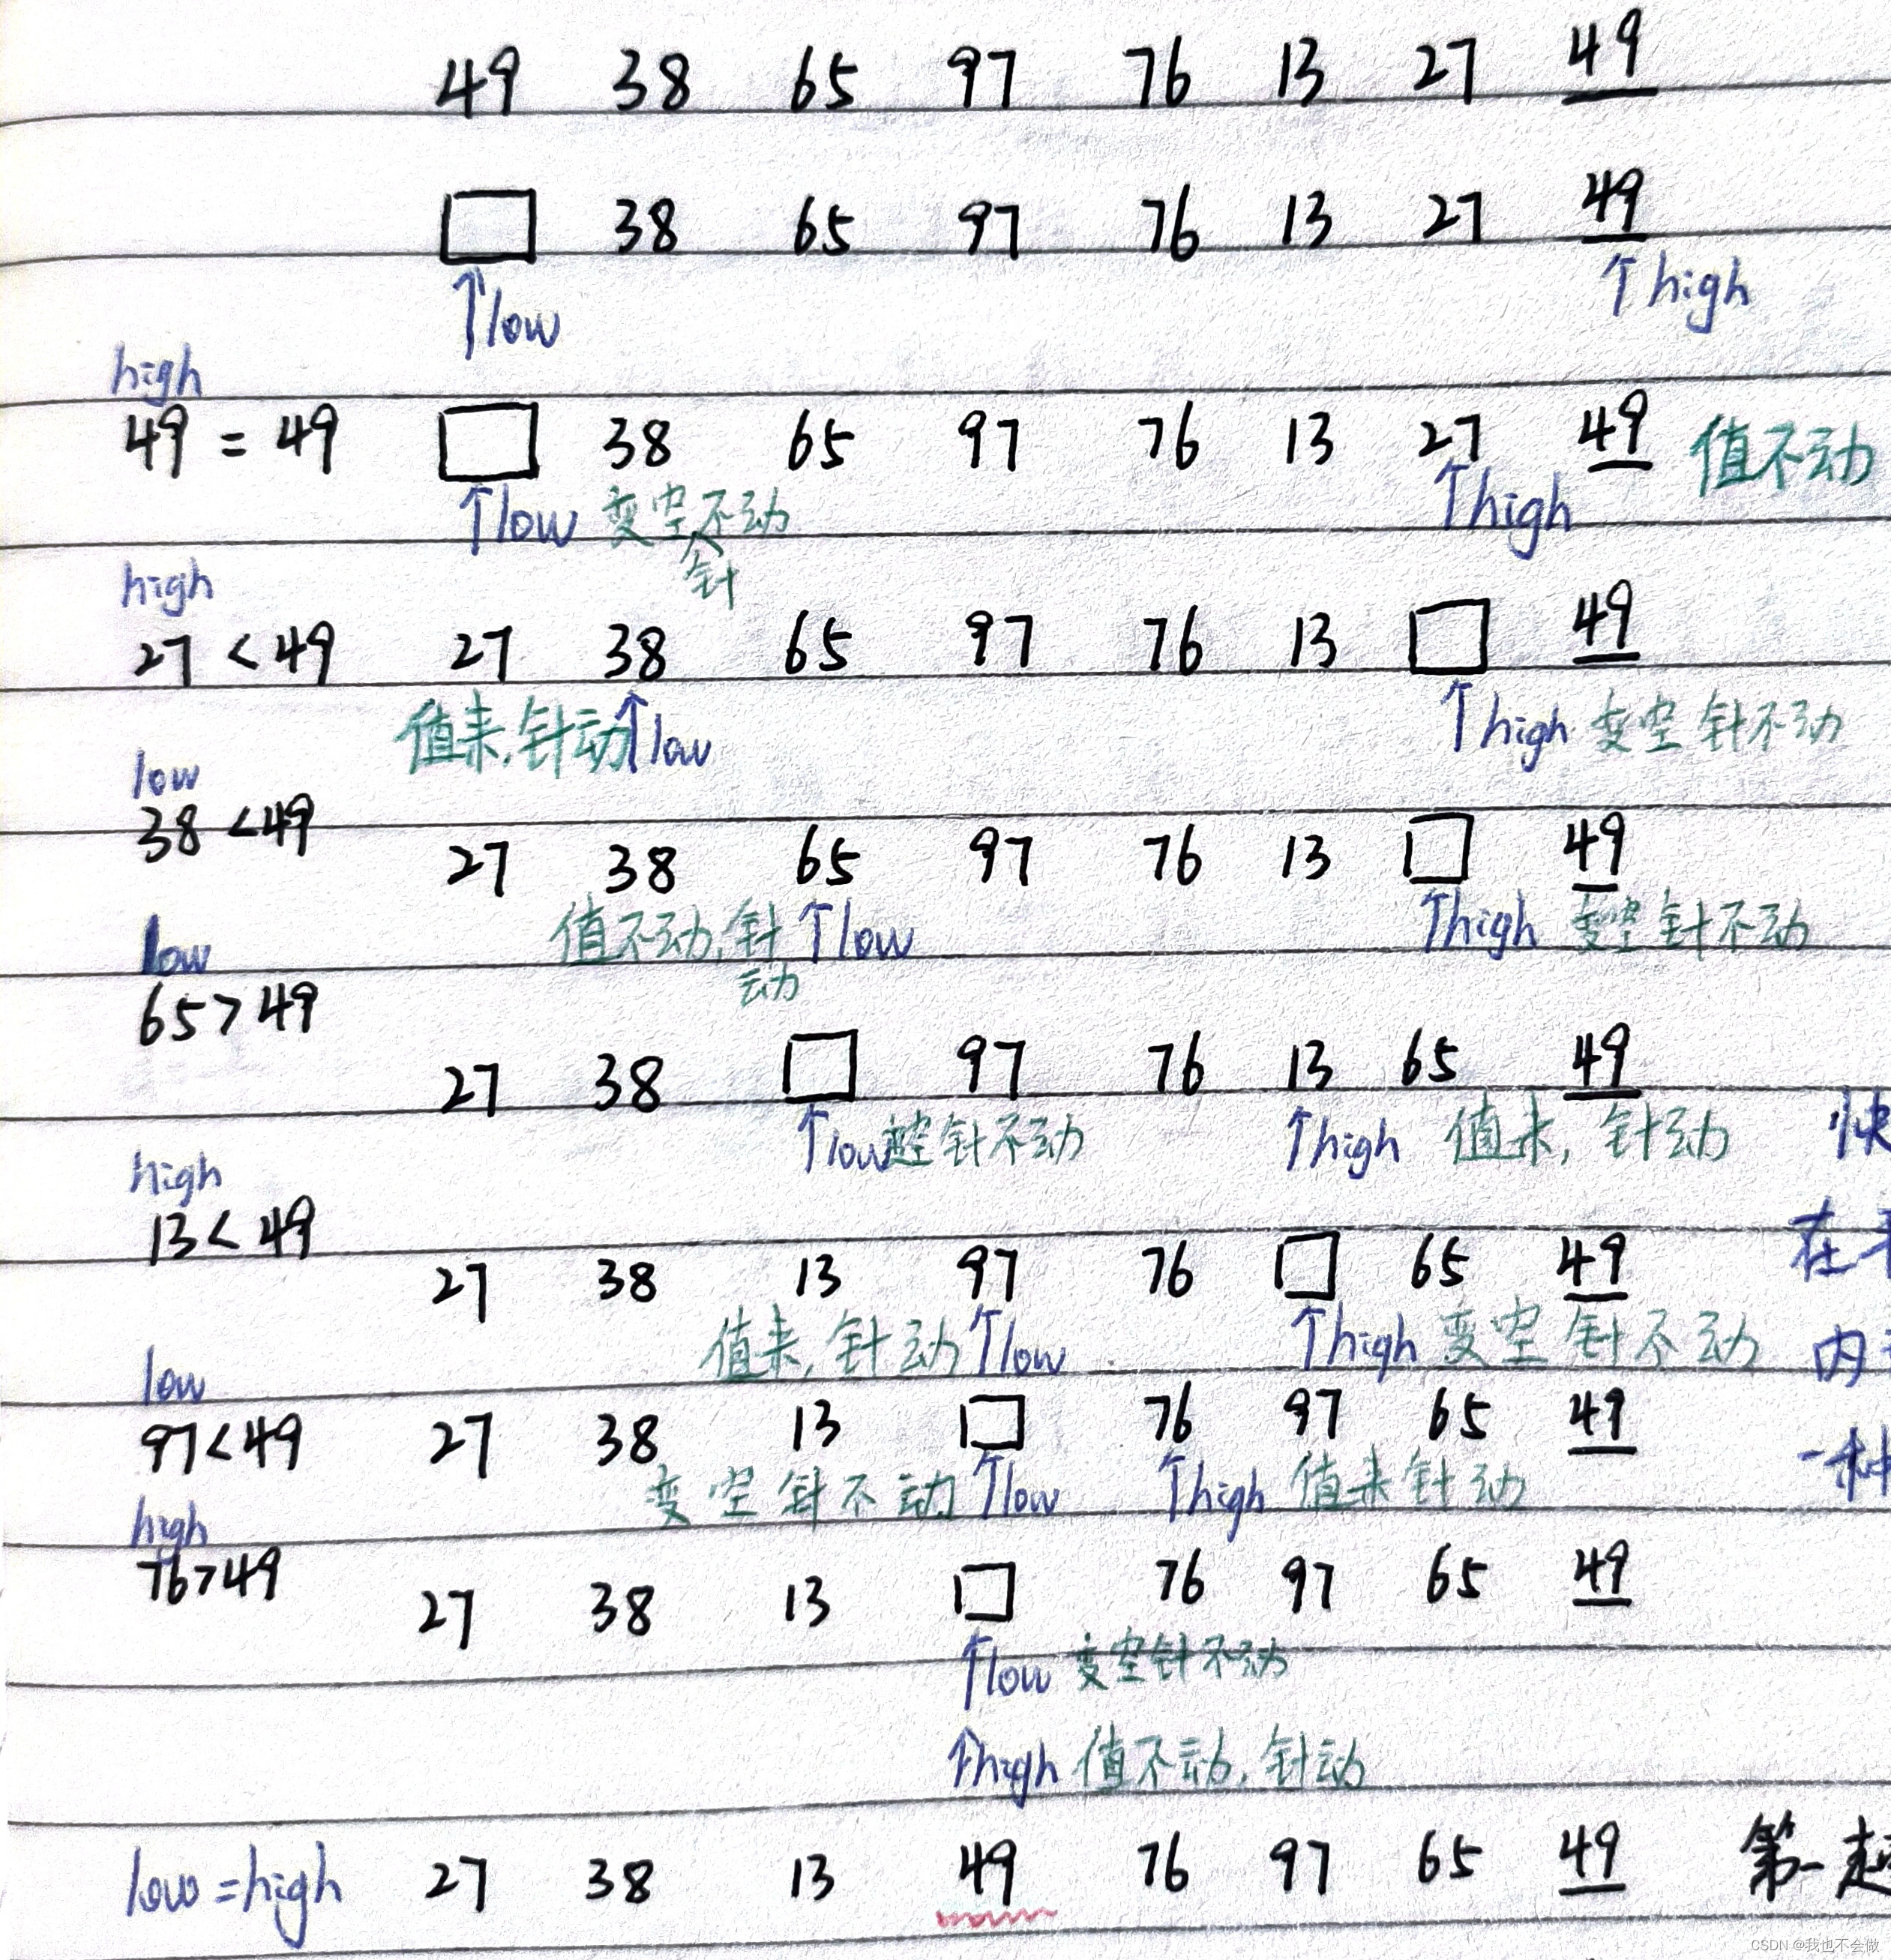 49 38 65 97 76 13 27 49
□ 38 65 97 76 13 27 49
↑low ↑high
high
49 = 49 □ 38 65 97 76 13 27 49 值不动
↑low 变空不动 ↑high
针
high
27 < 49 27 38 65 97 76 13 □ 49
值来,针动↑low ↑high 变空 针不动
low
38 < 49 27 38 65 97 76 13 □ 49
值不动,针 ↑low ↑high 变空 针不动
动
low
65 > 49 27 38 □ 97 76 13 65 49
↑low 变空 针不动 ↑high 值来, 针动 快
high
13 < 49 27 38 13 97 76 □ 65 49 在
值来, 针动 ↑low ↑high 变空 针不动 内
low
97 < 49 27 38 13 □ 76 97 65 49
变空 针不动 ↑low ↑high 值来针动 一种
high
76 > 49 27 38 13 □ 76 97 65 49
↑low 变空针不动
↑high 值不动, 针动
low = high 27 38 13 49 76 97 65 49 第一趟
CSDN @我也不会做